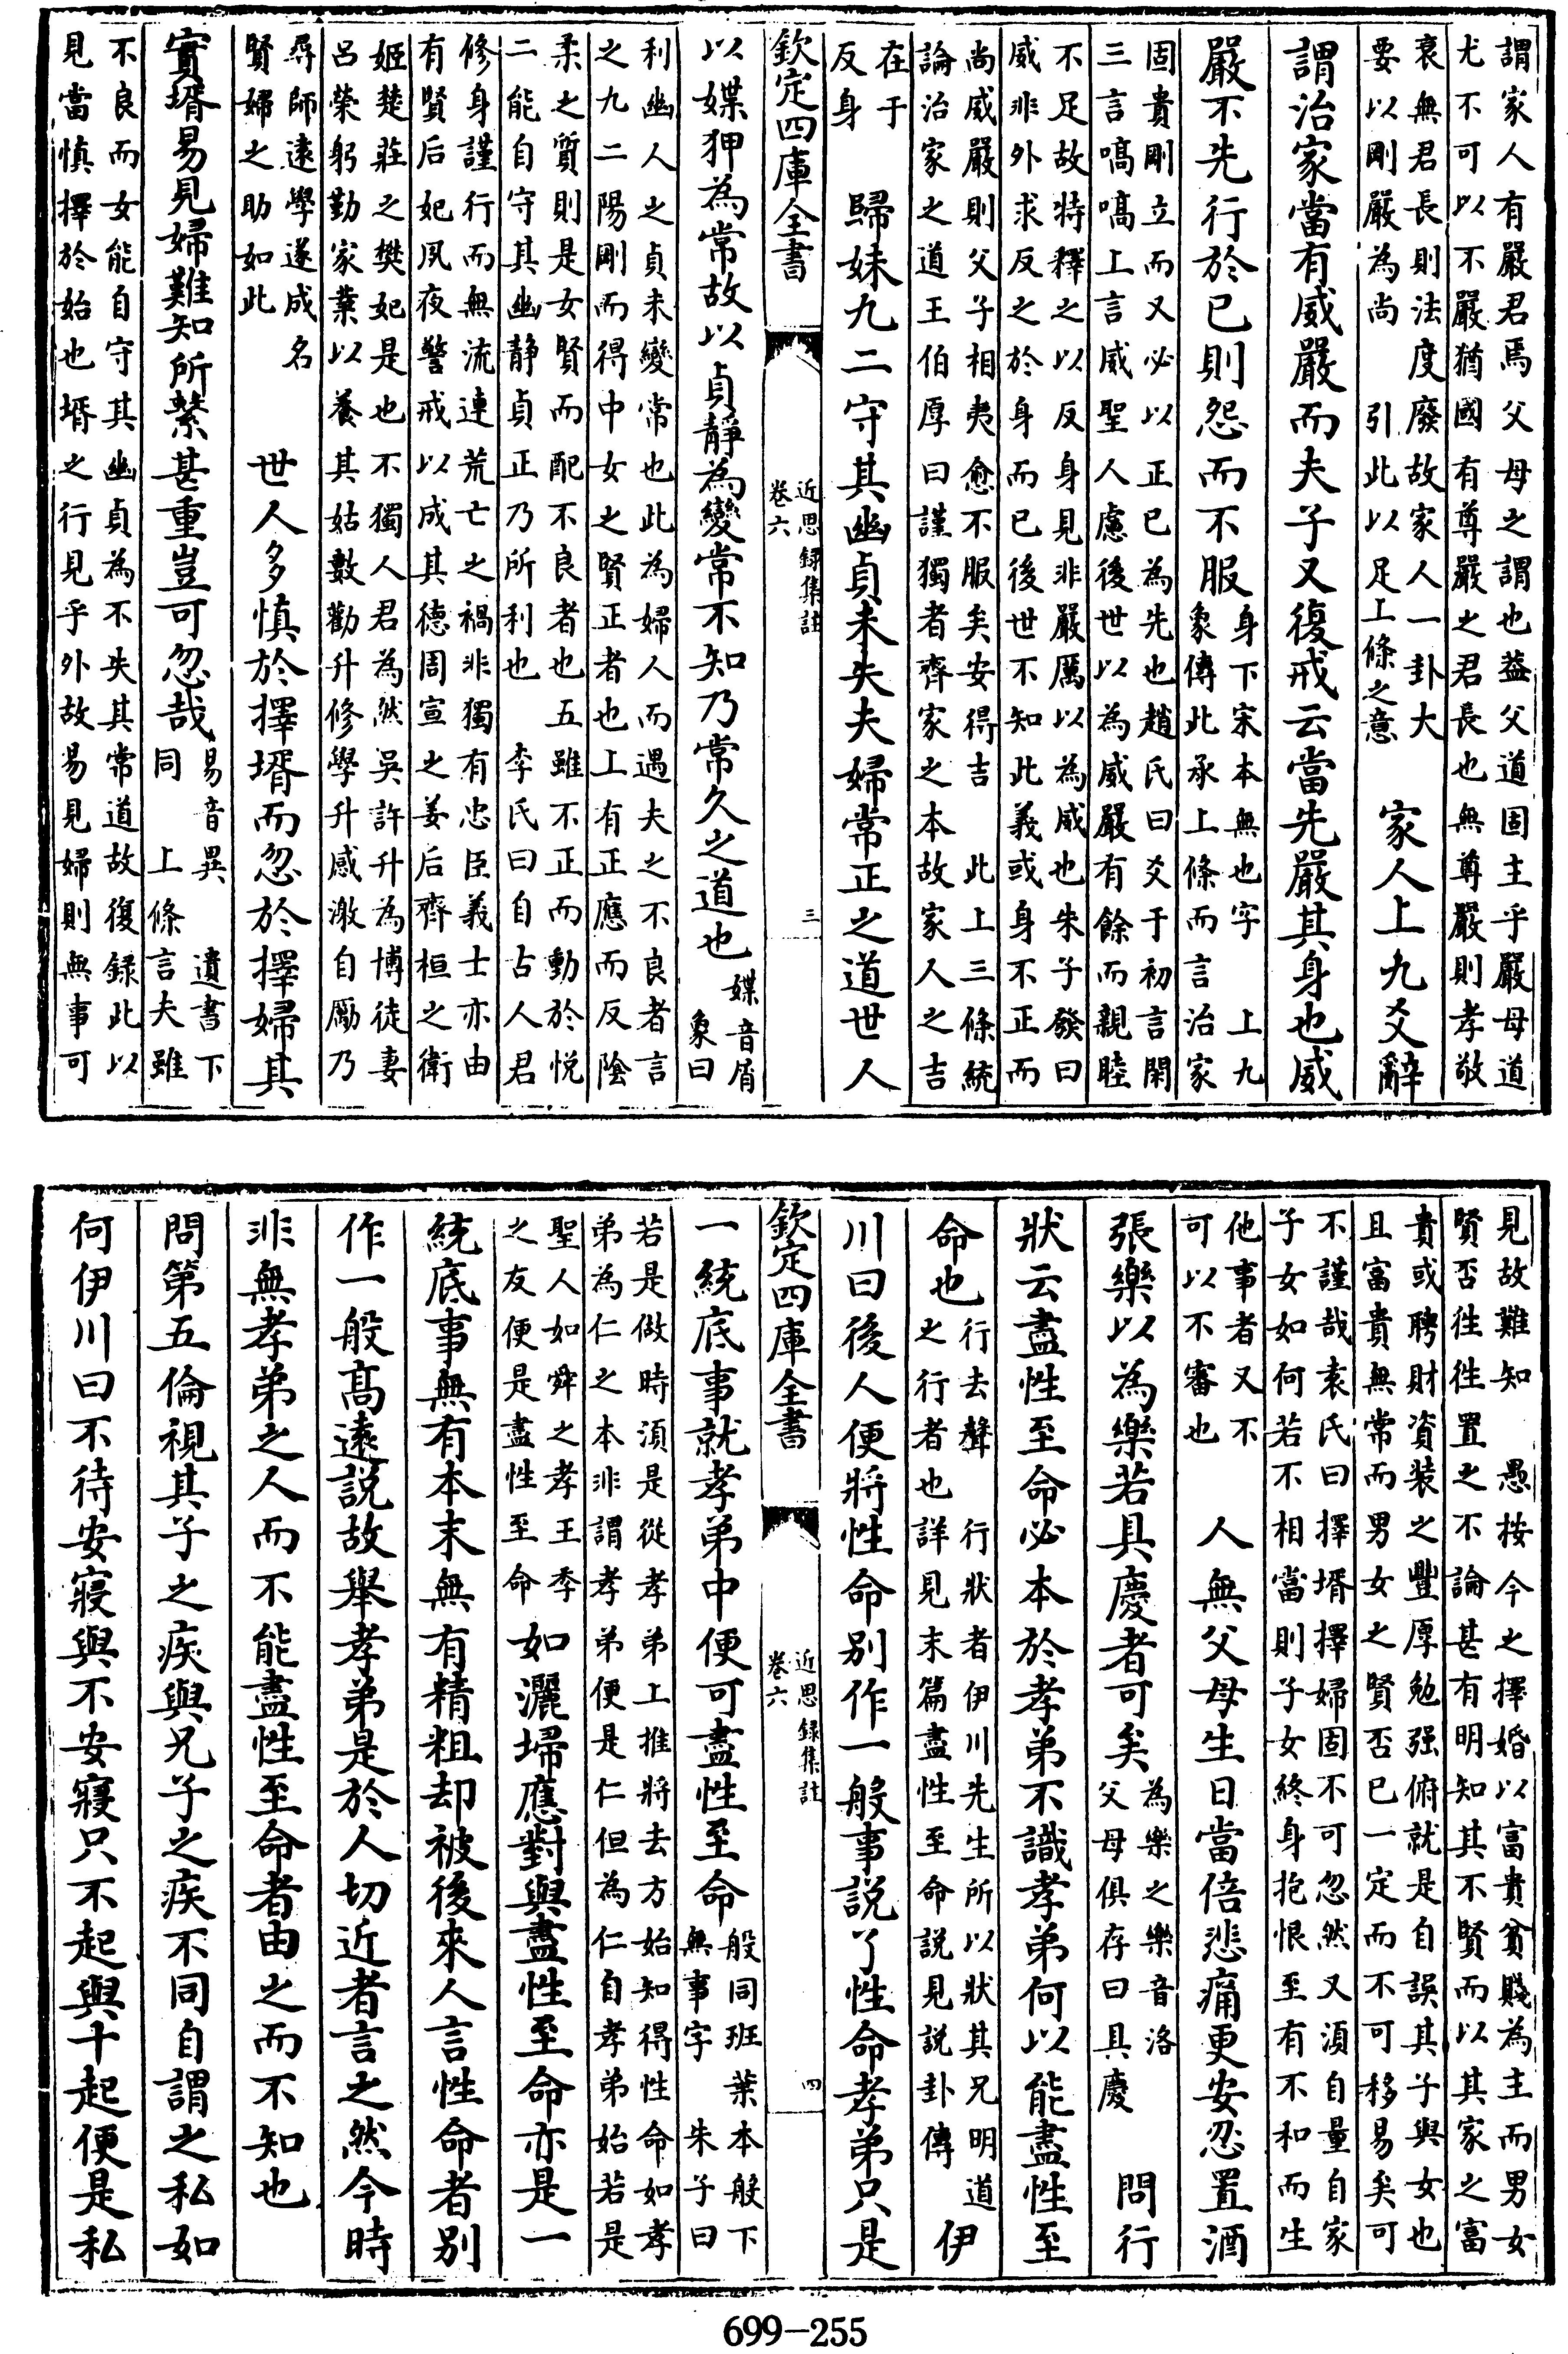 謂家人有嚴君焉父母之謂也葢父道固主乎嚴母道
尤不可以不嚴猶國有尊嚴之君長也無尊嚴則孝敬
衰無君長則法度廢故家人一卦大
要以剛嚴為尚　引此以足上條之意
家人上九爻辭
謂治家當有威嚴而夫子又復戒云當先嚴其身也威
嚴不先行於已則怨而不服
身下宋本無也字　上九
象傳此承上條而言治家
固貴剛立而又必以正已為先也趙氏曰爻于初言閑
三言嗃嗃上言威聖人慮後世以為威嚴有餘而親睦
不足故特釋之以反身見非嚴厲以為威也朱子發曰
威非外求反之於身而已後世不知此義或身不正而
尚威嚴則父子相夷愈不服矣安得吉　此上三條統
論治家之道王伯厚曰謹獨者齊家之本故家人之吉
在于
反身
歸妹九二守其幽貞未失夫婦常正之道世人
欽定四庫全書
近思録集註
卷六
三
以媟狎為常故以貞靜為變常不知乃常久之道也
媟音屑
象曰
利幽人之貞未變常也此為婦人而遇夫之不良者言
之九二陽剛而得中女之賢正者也上有正應而反陰
柔之質則是女賢而配不良者也五雖不正而動於悦
二能自守其幽静貞正乃所利也　李氏曰自古人君
修身謹行而無流連荒亡之禍非獨有忠臣義士亦由
有賢后妃夙夜警戒以成其德周宣之姜后齊桓之衛
姬楚莊之樊妃是也不獨人君為然吳許升為博徒妻
呂榮躬勤家業以養其姑數勸升修學升感激自勵乃
尋師遠學遂成名
賢婦之助如此
世人多慎於擇壻而忽於擇婦其
實壻易見婦難知所繫甚重豈可忽哉
易音異　遺書下
同　上條言夫雖
不良而女能自守其幽貞為不失其常道故復録此以
見當慎擇於始也壻之行見乎外故易見婦則無事可
見故難知　愚按今之擇婚以富貴貧賤為主而男女
賢否往往置之不論甚有明知其不賢而以其家之富
貴或聘財資装之豐厚勉强俯就是自誤其子與女也
且富貴無常而男女之賢否已一定而不可移易矣可
不謹哉袁氏曰擇壻擇婦固不可忽然又須自量自家
子女如何若不相當則子女終身抱恨至有不和而生
他事者又不
可以不審也
人無父母生日當倍悲痛更安忍置酒
張樂以為樂若具慶者可矣
為樂之樂音洛
父母俱存曰具慶
問行
狀云盡性至命必本於孝弟不識孝弟何以能盡性至
命也
行去聲　行狀者伊川先生所以狀其兄明道
之行者也詳見末篇盡性至命説見説卦傳
伊
川曰後人便將性命别作一般事説了性命孝弟只是
欽定四庫全書
近思録集註
卷六
四
一統底事就孝弟中便可盡性至命
般同班葉本般下
無事字　朱子曰
若是做時須是從孝弟上推將去方始知得性命如孝
弟為仁之本非謂孝弟便是仁但為仁自孝弟始若是
聖人如舜之孝王季
之友便是盡性至命
如灑埽應對與盡性至命亦是一
統底事無有本末無有精粗却被後來人言性命者别
作一般髙遠説故舉孝弟是於人切近者言之然今時
非無孝弟之人而不能盡性至命者由之而不知也
問第五倫視其子之疾與兄子之疾不同自謂之私如
何伊川曰不待安寢與不安寢只不起與十起便是私
699-255